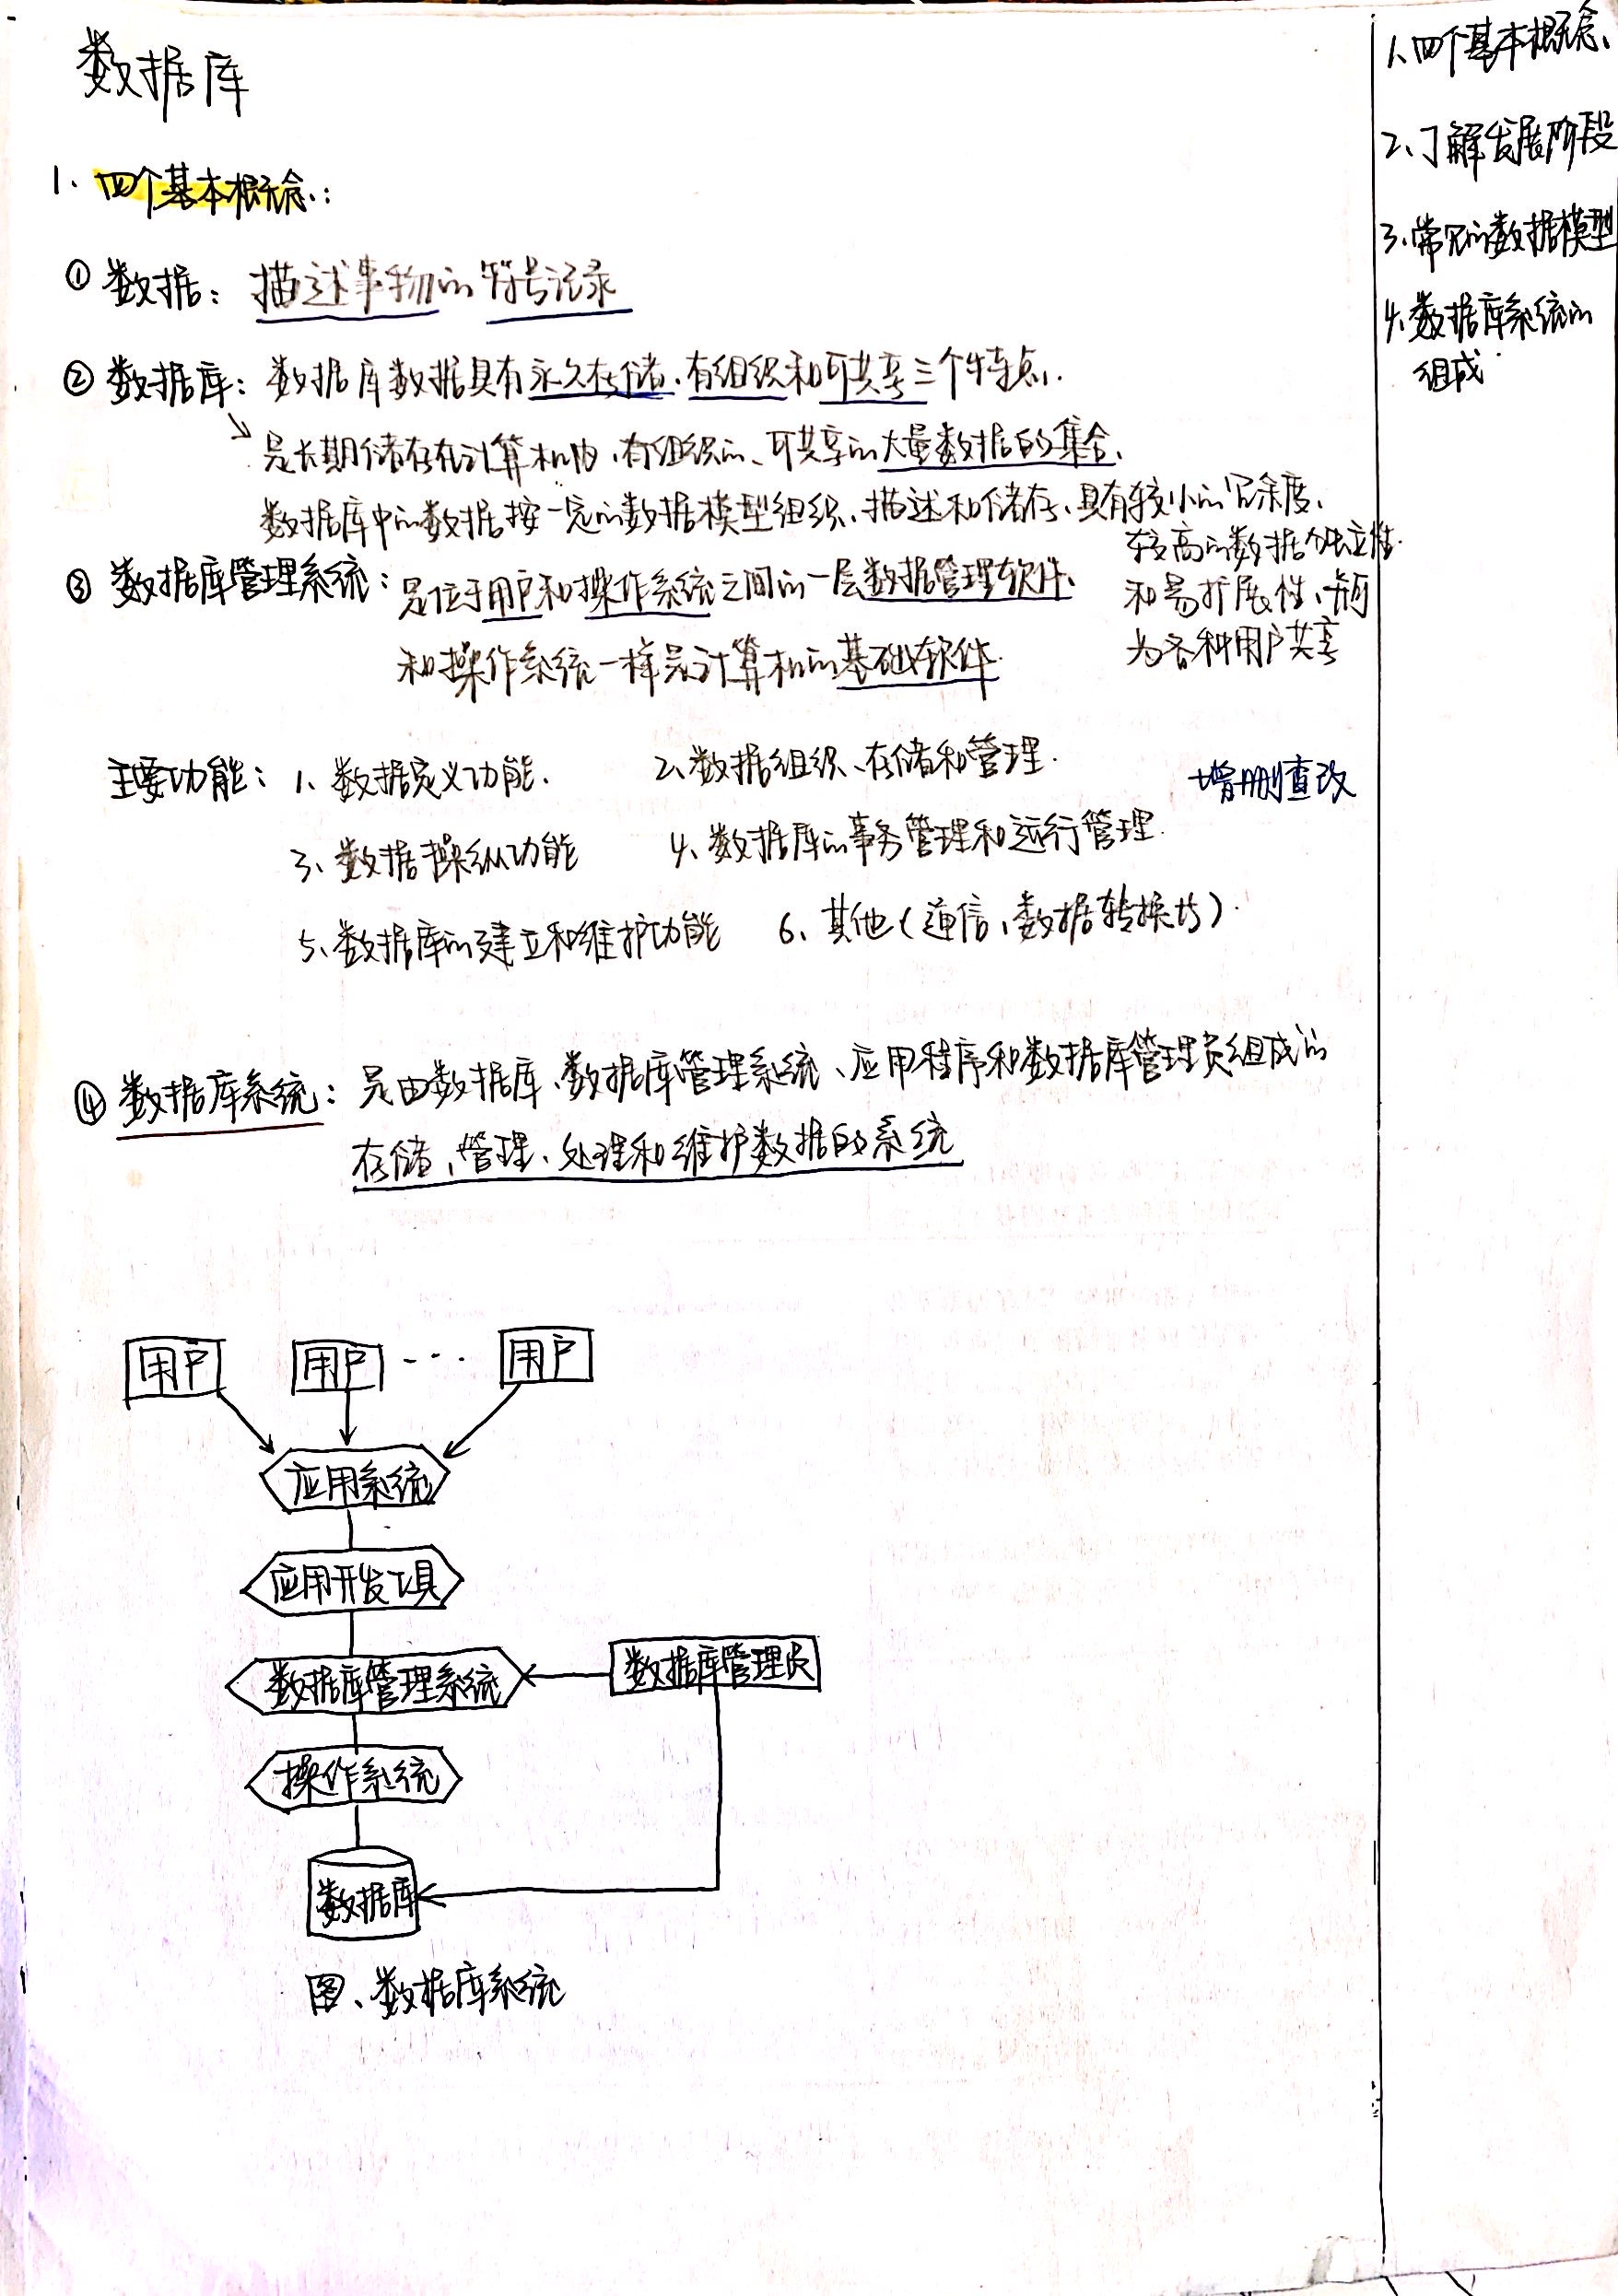 数据库
1、四个基本概念:
① 数据: 描述事物的符号记录
② 数据库: 数据库数据具有永久存储、有组织和可共享三个特点.
是长期储存在计算机内、有组织的、可共享的大量数据的集合、
数据库中的数据按一定的数据模型组织、描述和储存、具有较小的冗余度、
较高的数据独立性
和易扩展性、并可
为各种用户共享
③ 数据库管理系统: 是位于用户和操作系统之间的一层数据管理软件、
和操作系统一样是计算机的基础软件.
主要功能: 1、数据定义功能. 2、数据组织、存储和管理.
增删查改
3、数据操纵功能 4、数据库的事务管理和运行管理.
5、数据库的建立和维护功能 6、其他(通信、数据转换等).
④ 数据库系统: 是由数据库、数据库管理系统、应用程序和数据库管理员组成的
存储、管理、处理和维护数据的系统
用户 用户 ... 用户
应用系统
应用开发工具
数据库管理系统 数据库管理员
操作系统
数据库
图、数据库系统
1、四个基本概念、
2、了解发展阶段
3、常见的数据模型
4、数据库系统的
组成.